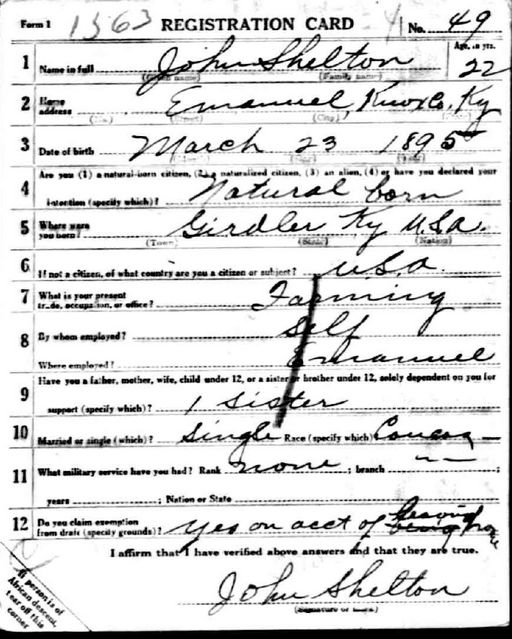 Form 1 1563 REGISTRATION CARD No. 49
1 Name in full John Shelton Age, in yrs. 22
(Given name) (Family name)
2 Home address Emanuel, Knox Co. Ky
(No.) (Street) (City) (State)
3 Date of birth March 23 1895
(Month) (Day) (Year)
4 Are you (1) a natural-born citizen, (2) a naturalized citizen, (3) an alien, (4) or have you declared your
intention (specify which)? Natural born
5 Where were you born? Girdler Ky U.S.A.
(Town) (State) (Nation)
6 If not a citizen, of what country are you a citizen or subject? U.S.A.
7 What is your present trade, occupation, or office? Farming
8 By whom employed? Self
Where employed? Emanuel
9 Have you a father, mother, wife, child under 12, or a sister or brother under 12, solely dependent on you for
support (specify which)? 1 Sister
10 Married or single (which)? Single Race (specify which)
11 What military service have you had? Rank none ; branch ;
years ; Nation or State
12 Do you claim exemption from draft (specify grounds)? Yes on acct of
I affirm that I have verified above answers and that they are true.
John Shelton
(Signature or mark)
If person is of
African descent,
tear off this
corner